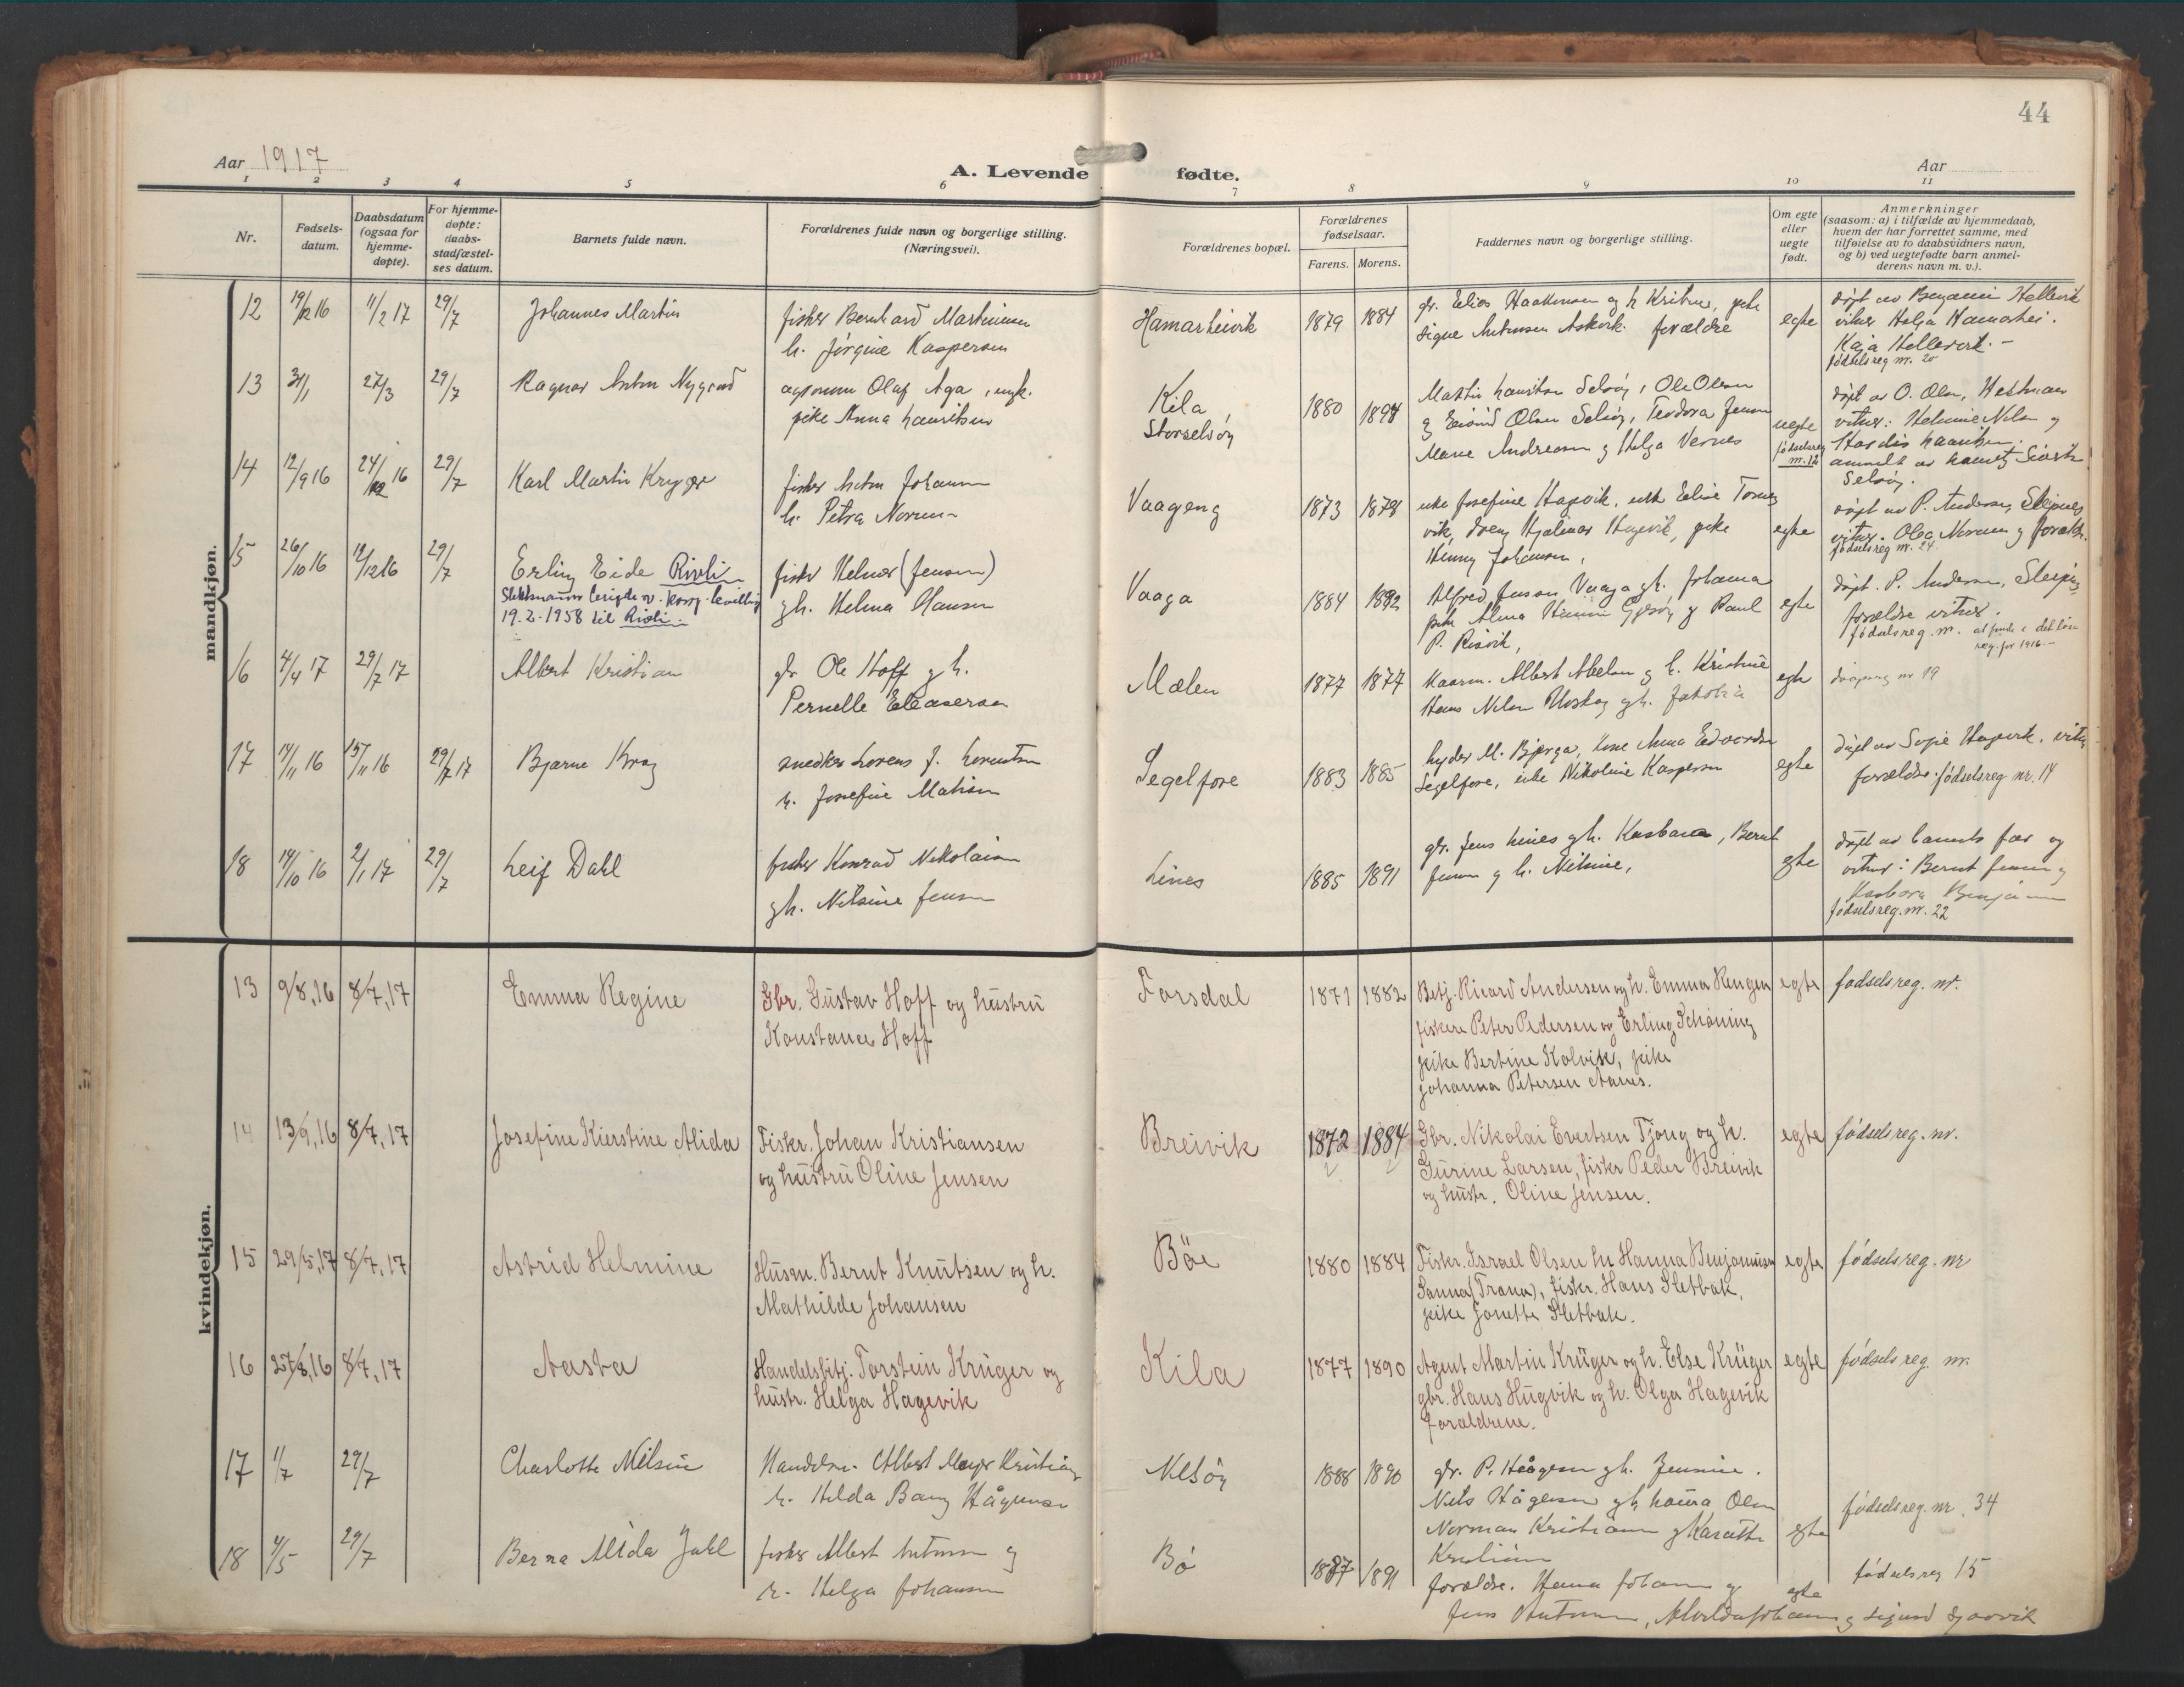 44
Aar 1917
A. Levende fødte.
Aar
1 2 3 4 5 6 7 8 9 10 11
Nr.
Fødsels-
datum.
Daabsdatum
(ogsaa for
hjemme-
døpte).
For hjemme-
døpte:
daabs-
stadfæstel-
ses datum.
Barnets fulde navn.
Forældrenes fulde navn og borgerlige stilling.
(Næringsvei).
Forældrenes bopæl.
Forældrenes
fødselsaar.
Farens. Morens.
Faddernes navn og borgerlige stilling.
Om egte
eller
uegte
født.
Anmerkninger
(saasom: a) i tilfælde av hjemmedaab,
hvem der har forrettet samme, med
tilføielse av to daabsvidners navn,
og b) ved uegtefødte barn anmel-
derens navn m. v.).
mandkjøn.
12 19/12 16 11/2 17 29/7 Johannes Martin
fisker Bernhard Martinussen
h. Jørgine Kaspersen
Hamarheivik 1879 1884
gr. Elias Haakensen og h Kristine, pike
Signe Antonsen Askvik. forældre
egte
døpt av Benjamin Hellevik
vitner Helga Hamarhei.
Kaja Hellevik. -
fødselsreg nr. 20
13 31/1 27/3 29/7 Ragnar Anton Nygaard
agronom Olaf Aga, ungk.
pike Anna Lauritsen
Kila,
Storselsøy
1880 1894
Martin Lauritsen Selsøy, Ole Olsen
g Eivind Olsen Selsøy, Teodora Jensen
Marie Andreasen g Helga Vernes
uegte
fødselsreg
nr. 12
døpt av O. Olsen, Hestman
vitner: Helmine Nilsen og
Hardis Lauritsen.
anmeldt av
Selsøy.
14 12/9 16 24/12 16 29/7 Karl Martin Kryger
fisker Anton Johansen
h. Petra Norum
Vaageng 1873 1878
enke Josefine Hagevik, enk Eline Tonnes
vik, dreng Hjalmar Hagevik, pike
Henny Johansen,
egte
døpt av P. Andersen, Sleipnes
vitner. Olea Norum g foræld.
fødselsreg nr. 24.
15 26/10 16 12/12 16 29/7 Erling Eide Rivli
19.2.1958 til Rivli
fisker Helmer (Jensen)
gh. Helma Hansen
Vaaga 1884 1892
Alfred Jensen Vaaga gh. Johanna
pike Alma Gjesøy g Paul
P. Risvik,
egte
døpt. P. Andersen, Sleipn.
forældre vitner.
fødselsreg. nr.
reg. for 1916.-
16 4/4 17 29/7 17 Albert Kristian
gr. Ole Hoff g h.
Pernelle Eleasersen
Mælen 1877 1877
Kaarm. Albert Abelsen g h. Kristine
Hans Nilsen gh. Jakobia
egte
nr 19
17 14/11 16 15/11 16 29/7 17 Bjarne Krog
snedker Lorens J. Lorentsen
h. Josefine Mathisen
Segelfore 1883 1885
M. Bjerga, kone Anna Edvardsen
Segelfore, enke Nikoline Kaspersen
egte
døpt av Sofie Hagevik. vitn
forældre. fødselsreg nr. 14
18 14/10 16 2/1 17 29/7 Leif Dahl
fisker Konrad Nikolaisen
gh. Nilsine Jensen
Lines 1885 1891
gr. Jens Lines gh. Kasbara, Bernt
Jensen g h. Nilsine,
egte
døpt av barnets far og
vitner: Bernt Jensen g
Kasbara Benjaminsen
fødselsreg. nr. 22
kvindekjøn.
13 9/8,16 8/7,17 Emma Regine
Gbr. Gustav Hoff og hustru
Konstanse Hoff
Forsdal 1871 1882
Betj. Ricard Andersen og h. Emma Rengen
fiskere Peter Pedersen og Erling Schøning
pike Bertine Kolvik, pike
Johanna Petersen Aanes.
egte fødselsreg. nr.
14 13/9,16 8/7,17 Josefine Kierstine Alida
Fiskr. Johan Kristiansen
og hustru Oline Jensen
Breivik 1872 1884
Gbr. Nikolai Evertsen Tjong og h.
Gurine Larsen, fiskr Peder Breivik
og hustr. Oline Jensen.
egte fødselsreg. nr.
15 29/5,17 8/7,17 Astrid Helmine
Husm. Bernt Knutsen og h.
Mathilde Johansen
Böe 1880 1884
Fiskr. Israel Olsen h. Hanna Benjaminsen
Sanna (Træna), fiskr. Hans Sletbak,
pike Jonette Sletbak.
egte fødselsreg. nr
16 27/8,16 8/7,17 Aasta
Handelsbtj. Torstein Krüger og
hustr. Helga Hagevik
Kila 1877 1890
Agent Martin Krüger og h. Else Krüger
gbr. Hans Hugvik og h. Olga Hagevik
Forældrene.
egte fødselsreg. nr.
17 1/7 29/7 Charlotte Nilsine
Handelsm. Albert Meyer Kristians
h. Hilda Bang Hågensen
Nesøy 1888 1890
gr. P. Hågensen gh. Jensine.
Nils Hågensen gh Laura Olsen
Norman Kristiansen g
Kristiansen
egte fødselsreg. nr. 34
18 4/5 29/7 Berna Alida Juhl
fisker Albert Antonsen g
h. Helga Johansen
Bö 1887 1891
forældre. Hanna Johansen g
Jens Antonsen, g Sigurd
egte fødselsreg 15